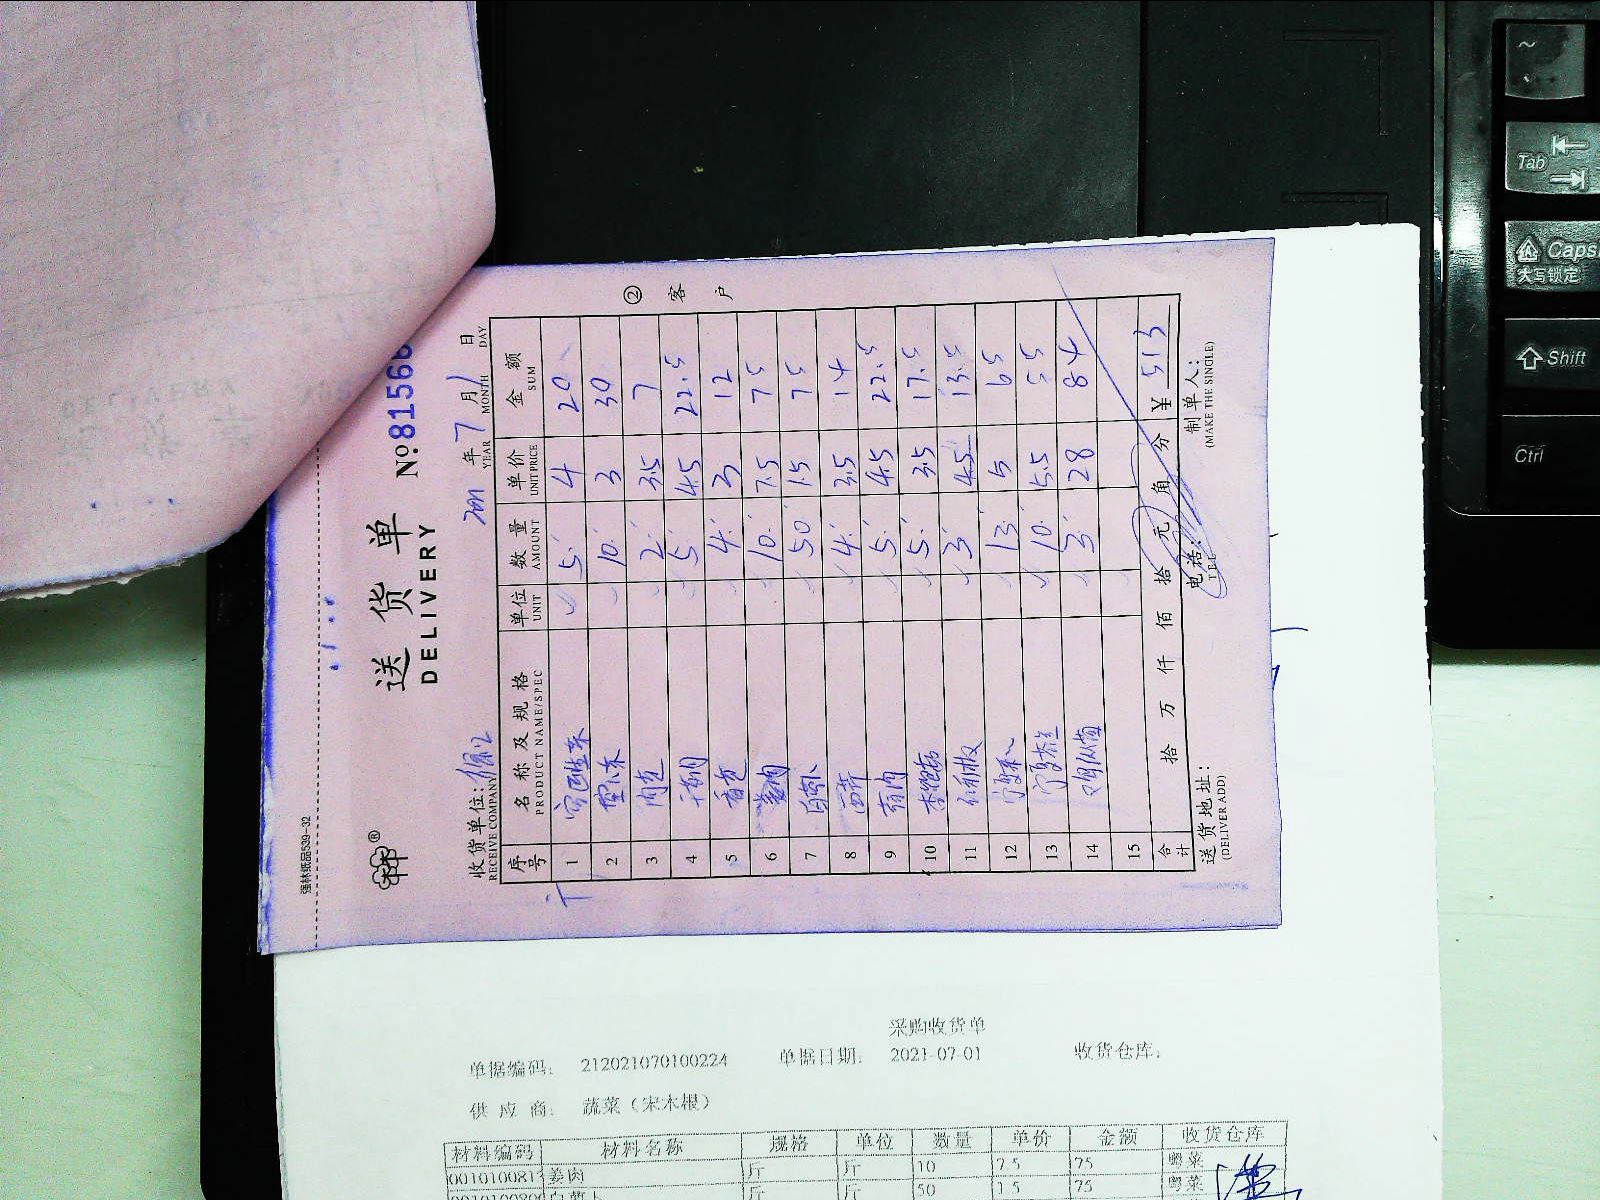 强林纸品539-32
② 客 户
送 货 单
DELIVERY
№:81566
收货单位:
RECEIVE COMPANY
2021 年 7 月 1 日
YEAR MONTH DAY
序号 名 称 及 规 格 单位 数 量 单 价 金 额
PRODUCT NAME/SPEC UNIT AMOUNT UNIT PRICE SUM
1 5 4 20
2 10 3 30
3 2 3.5 7
4 千胡 5 4.5 22.5
5 香芫 4 3 12
6 姜肉 10 7.5 75
7 白萝卜 50 1.5 75
8 西芹 4 3.5 14
9 5 4.5 22.5
10 5 3.5 17.5
11 3 4.5 13.5
12 13 5 65
13 10 5.5 55
14 3 28 84
15
合计 拾 万 仟 佰 拾 元 角 分 ¥ 513
送货地址: 电话: 制单人:
(DELIVER ADD) TEL (MAKE THE SINGLE)
采购收货单
单据编码: 212021070100224 单据日期: 2021-07-01 收货仓库:
供 应 商: 蔬菜（宋木根）
材料编码 材料名称 规格 单位 数量 单价 金额 收货仓库
0010100813 姜肉 斤 斤 10 7.5 75 粤菜
白萝卜 斤 斤 50 1.5 75 粤菜
~
Tab
Caps
大写锁定
Shift
Ctrl